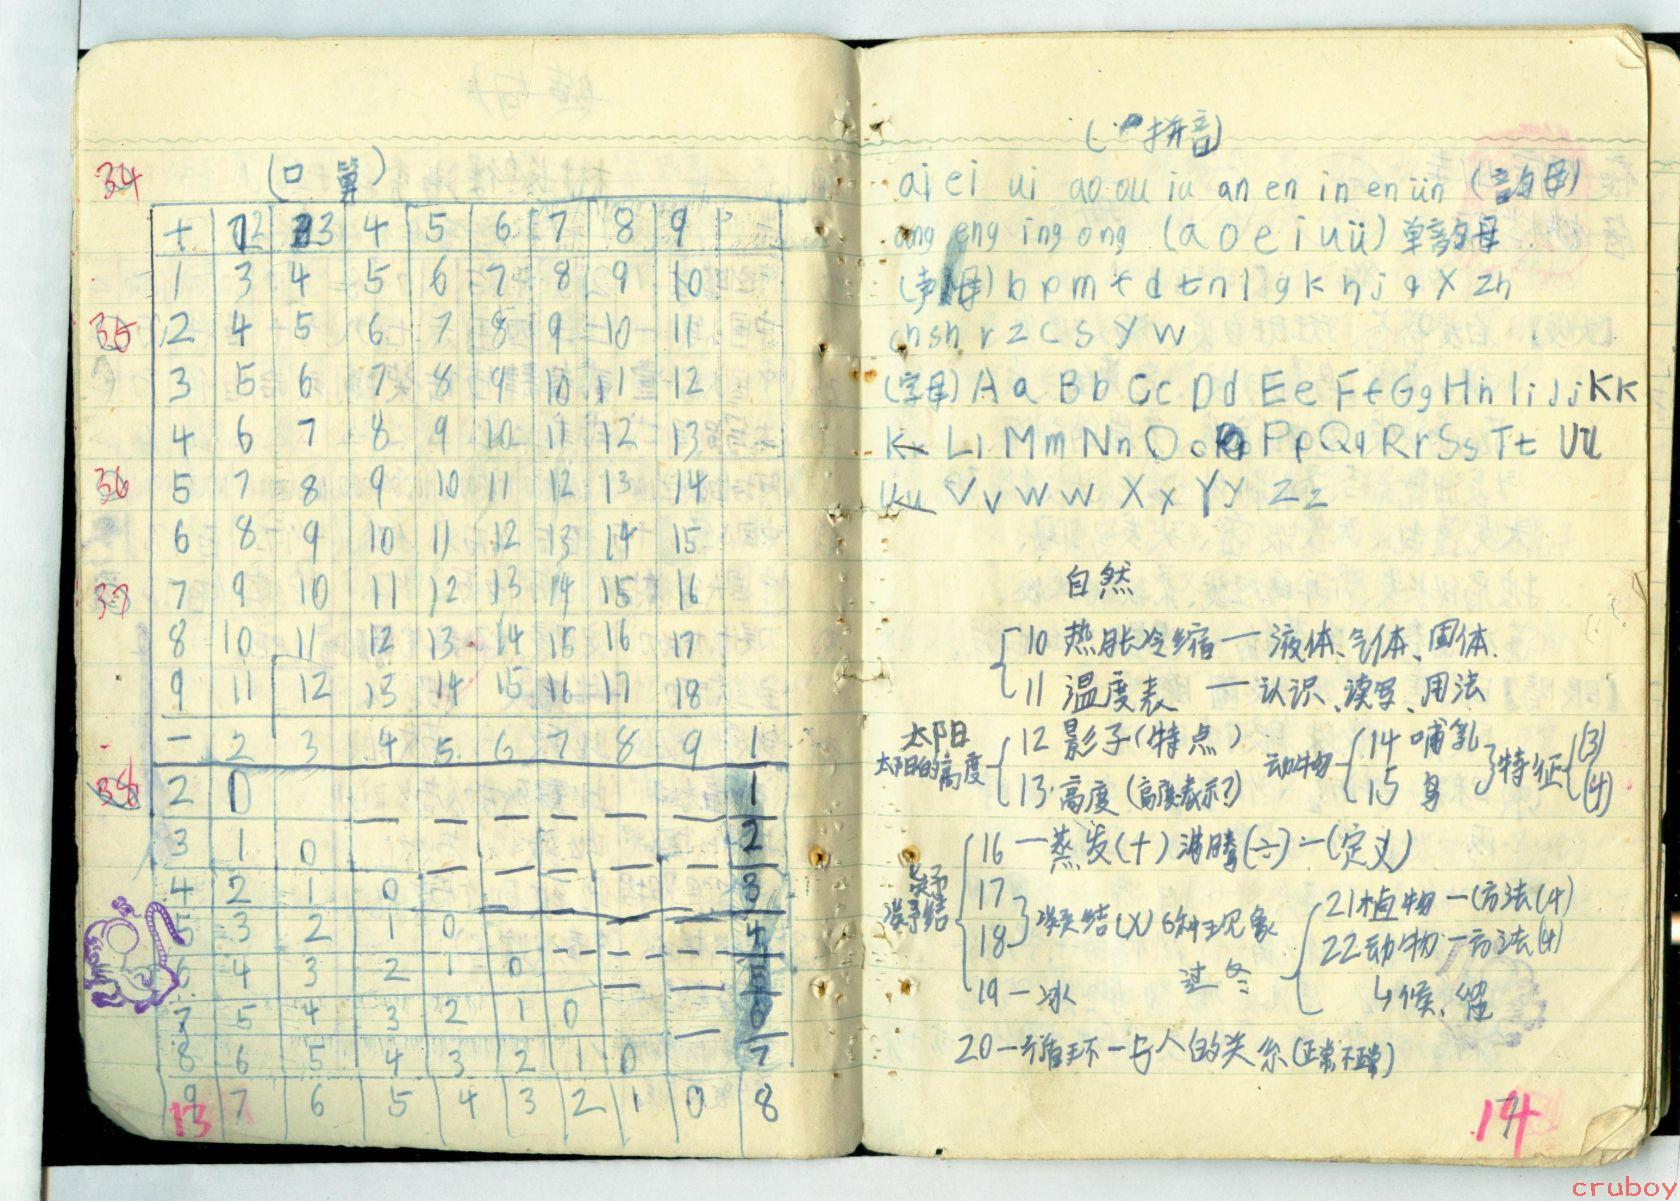 34
(口算)
+ 2 3 4 5 6 7 8 9
1 3 4 5 6 7 8 9 10
35
2 4 5 6 7 8 9 10 11
3 5 6 7 8 9 10 11 12
4 6 7 8 9 10 11 12 13
36
5 7 8 9 10 11 12 13 14
6 8 9 10 11 12 13 14 15
37
7 9 10 11 12 13 14 15 16
8 10 11 12 13 14 15 16 17
9 11 12 13 14 15 16 17 18
- 2 3 4 5 6 7 8 9 1
38
2 0 — — — — — — 1
3 1 0 — — — — — 2
4 2 1 0 — — — — 3
5 3 2 1 0 — — — — 4
6 4 3 2 1 0 — — 5
7 5 4 3 2 1 0 — 6
8 6 5 4 3 2 1 0 7
9 7 6 5 4 3 2 1 0 8
13
(拼音)
ai ei ui ao ou iu an en in en ün (韵母)
ang eng ing ong (a o e i u ü) 单韵母
(声母) b p m f d t n l g k h j q x zh
ch sh r z c s y w
(字母) A a B b C c D d E e F f G g H h I i J j K k
L l M m N n O o P p Q q R r S s T t U u
V v W w X x Y y Z z
自然
10 热胀冷缩 — 液体、气体、固体.
11 温度表 — 认识、读写、用法
太阳
太阳的高度
12 影子(特点)
13 高度(高度表示?)
动物
14 哺乳
15 鸟
特征 (3) (4)
16 — 蒸发(十) 沸腾(六) — (定义)
凝结
17
18
凝结(X) 6种现象
19 — 冰
过冬
21 植物 — 方法(4)
22 动物 — 方法(4)
↳候、留
20 — 循环 — 与人的关系(正常不正常)
14
cruboy